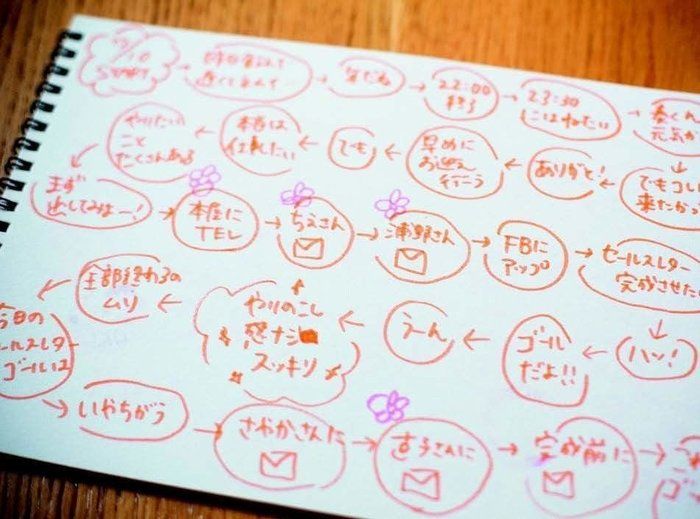 /10
START
22:00
終了
23:30
にはねたい
元気
でもコレ
来たから
ありがと!
早めに
お迎え
行こう
でも
本当は
仕事したい
やりたい
こと
たくさんある
まず
出してみよー!
本屋に
TEL
ちえさん
浦野さん
FBに
アップ
セールスレター
完成させた
ハッ!
ゴール
だよ!!
うーん
やりのこし
感ナシ
スッキリ
全部終わるの
ムリ
今日の
ールスレター
ゴールは
いやちがう
さやかさんに
すうさんに
完成前に